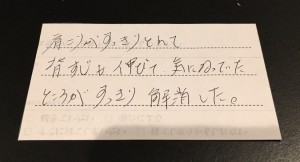 肩こりがすっきりとれて
背すじも伸びて 気になっていた
ところが すっきり 解消した。